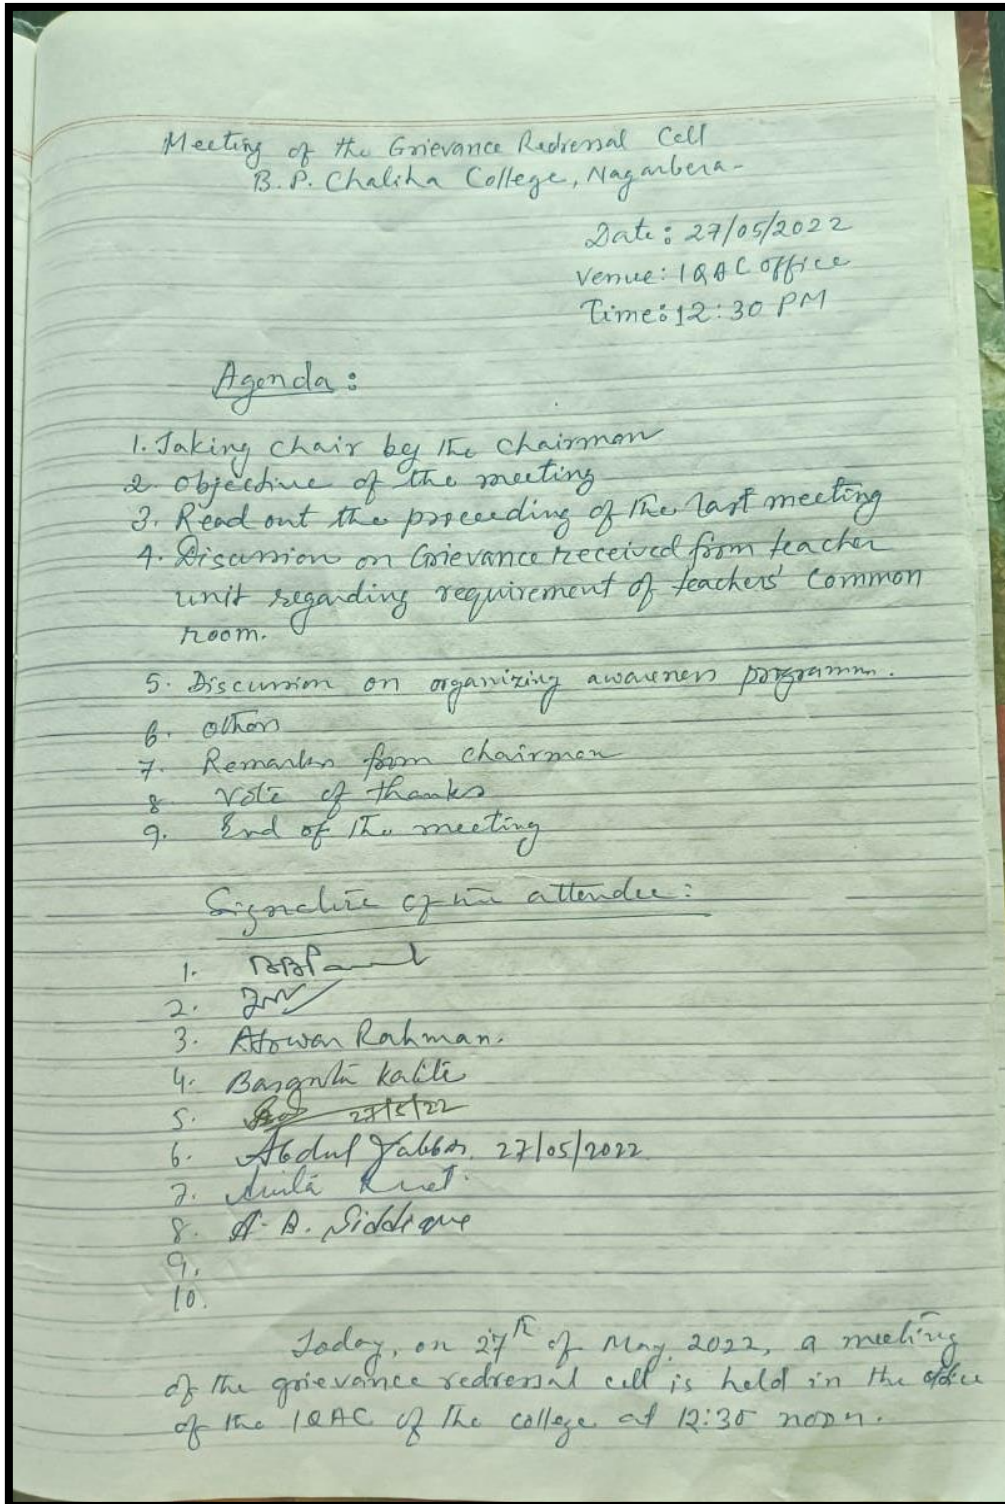 Meeting of the Grievance Redressal Cell
B.P. Chaliha College, Nagarbera-
Date: 27/05/2022
Venue: IQAC office
Time: 12:30 PM
Agenda:
1. Taking chair by the chairman
2. Objective of the meeting
3. Read out the proceeding of the last meeting
4. Discussion on Grievance received from teacher
unit regarding requirement of teachers' common
room.
5. Discussion on organizing awareness programm.
6. Others
7. Remarks from chairman
8. Vote of thanks
9. End of the meeting
Signature of the attendee:
1.
2.
3. Atowar Rahman.
4. Kalita
5. 27/5/22
6. Abdul Jabbar 27/05/2022
7.
8. A. B. Siddique
9.
10.
Today, on 27th of May, 2022, a meeting
of the grievance redressal cell is held in the office
of the IQAC of the college at 12:30 noon.